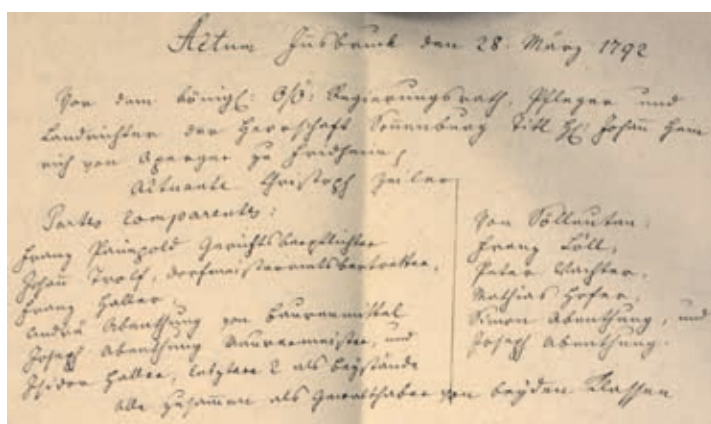 Actum Jnsbruck den 28. März 1792
Vor dem königl: O/Ö: Regierungsrath, Pfleger und
Landrichter der Herrschaft Sonnenburg Titl H: Johañ Hein
rich von Aperger zu Fridheim,
Actuante Christoph Zeiler
Partes Comparentes:
Franz Gerichtsverpflichter
Johañ Trolf, Dorfmeisteramtsvertretter,
Franz Haller,
Andrä Abenthung von Baurenmittel
Joseph Abenthung Maurermeister, und
Jsidor Haller, letztere 2 als Beystände
Von Söllleuten:
Franz Töll,
Peter Wachter,
Mathias Hofer,
Simon Abenthung, und
Joseph Abenthung.
Alle zusammen als Gewalthaber von beyden Klassen